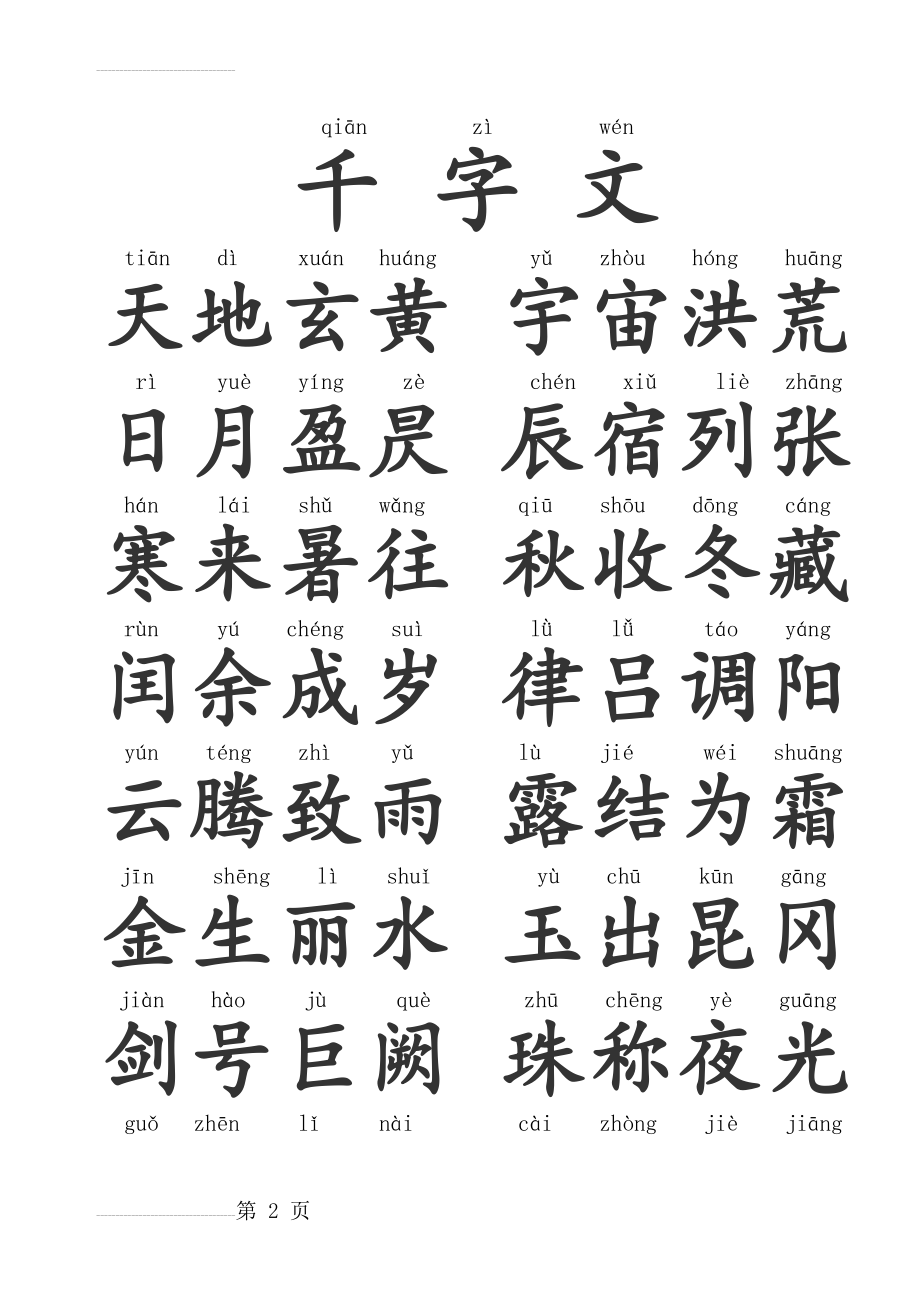 qiān zì wén
千 字 文
tiān dì xuán huáng yǔ zhòu hóng huāng
天 地 玄 黄 宇 宙 洪 荒
rì yuè yíng zè chén xiǔ liè zhāng
日 月 盈 昃 辰 宿 列 张
hán lái shǔ wǎng qiū shōu dōng cáng
寒 来 暑 往 秋 收 冬 藏
rùn yú chéng suì lǜ lǚ táo yáng
闰 余 成 岁 律 吕 调 阳
yún téng zhì yǔ lù jié wéi shuāng
云 腾 致 雨 露 结 为 霜
jīn shēng lì shuǐ yù chū kūn gāng
金 生 丽 水 玉 出 昆 冈
jiàn hào jù què zhū chēng yè guāng
剑 号 巨 阙 珠 称 夜 光
guǒ zhēn lǐ nài cài zhòng jiè jiāng
第 2 页